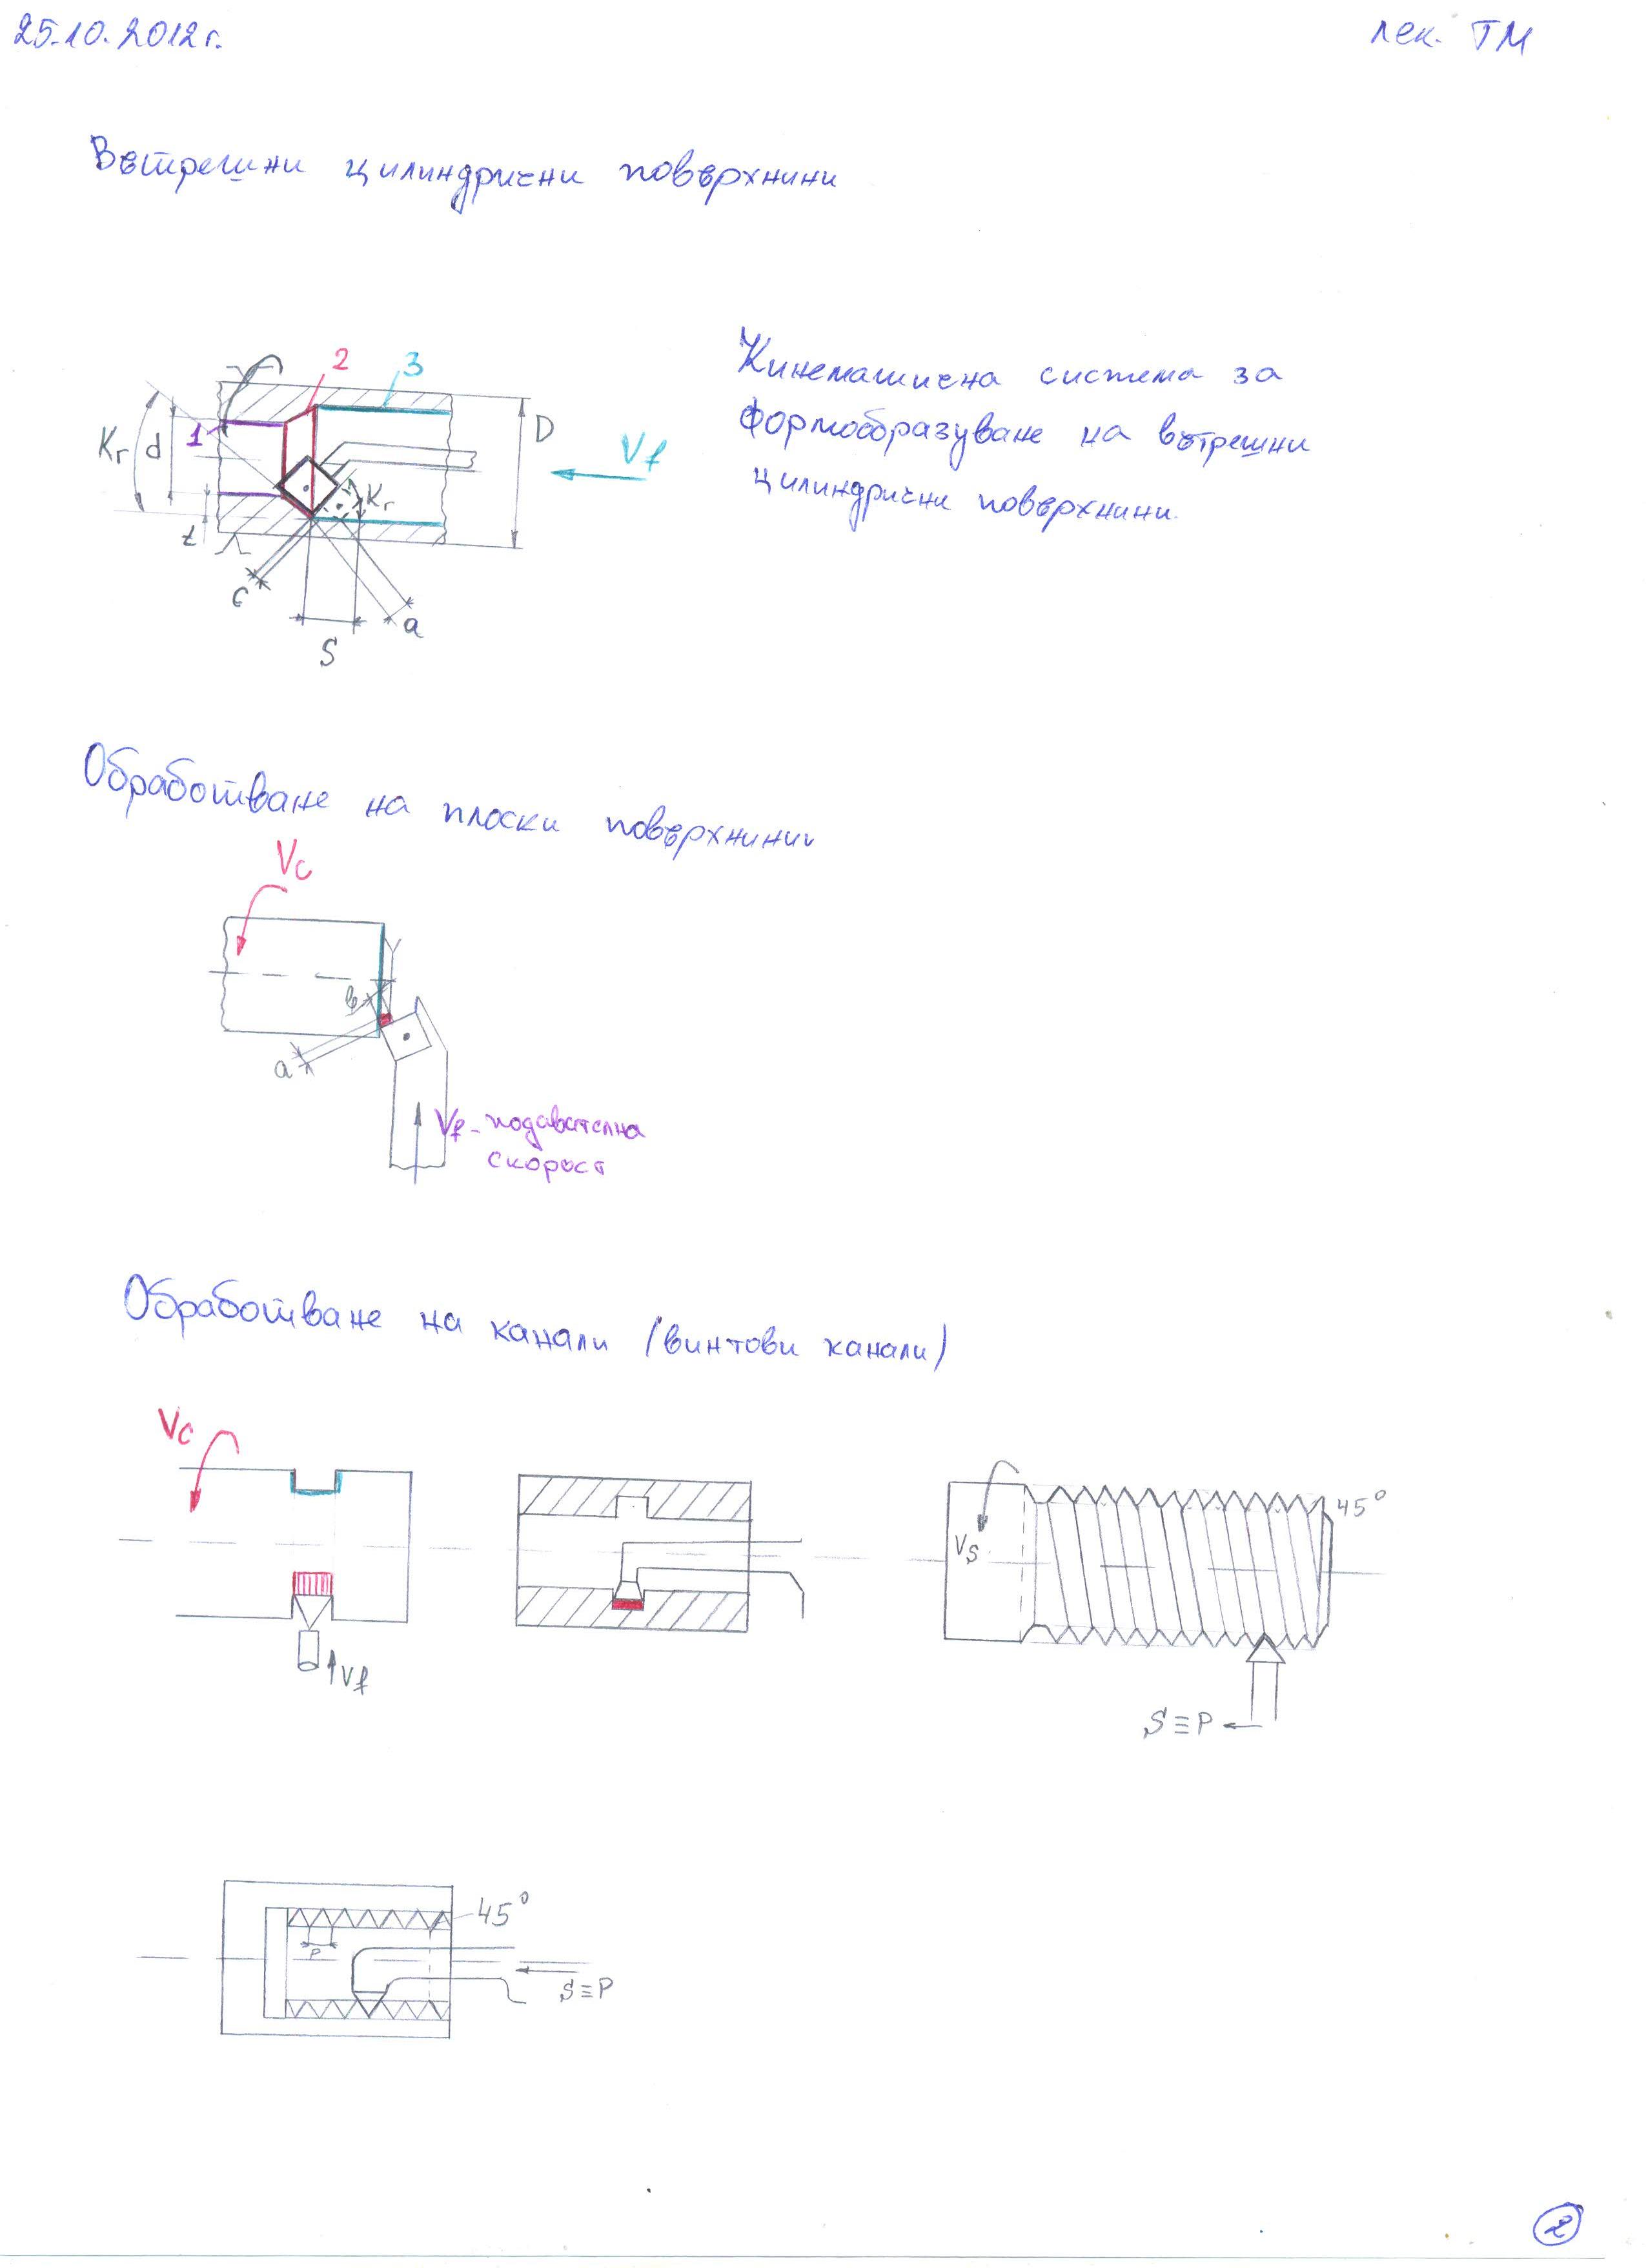 25.10.2012г.
лек. ТМ
Вътрешни цилиндрични повърхнини
2
3
1
Kr
d
D
Vf
Kr
t
c
S
a
Кинематична система за
формообразуване на вътрешни
цилиндрични повърхнини.
Обработване на плоски повърхнини
Vc
в
a
Vf - подавателна
скорост
Обработване на канали (винтови канали)
Vc
Vf
Vs
45°
S≡P
45°
P
S≡P
2